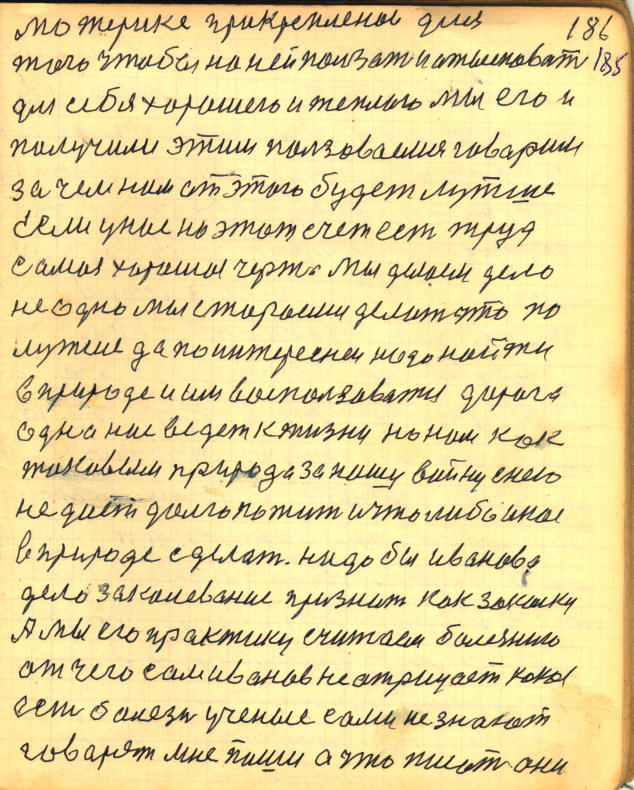 материке прикрепленои для 186
того чтобы на ней ползат и отысковат 185
для себя хорошего и теплого мы его и
получили этим ползоваемся говарим
зачем нам от этого будет лутше
Если у нас на этот счет ест труд
самоя хорошоя черта мы делаем дело
не одно мы стараемся делат это по
лутше да по интересней надо найти
в природе и им восползоватся дорога
одна нас ведет к жизни но нам как
таковыем природа за нашу войну с нею
не дает долго пажит и что либо иное
в природе сделат. надо бы иванова
дело закалевание признат как закалку
А мы его практику считаем болезнию
от чего сам иванов не отрицает какая
ест болезн ученые сами не знают
говарят мне пиши а что писат они